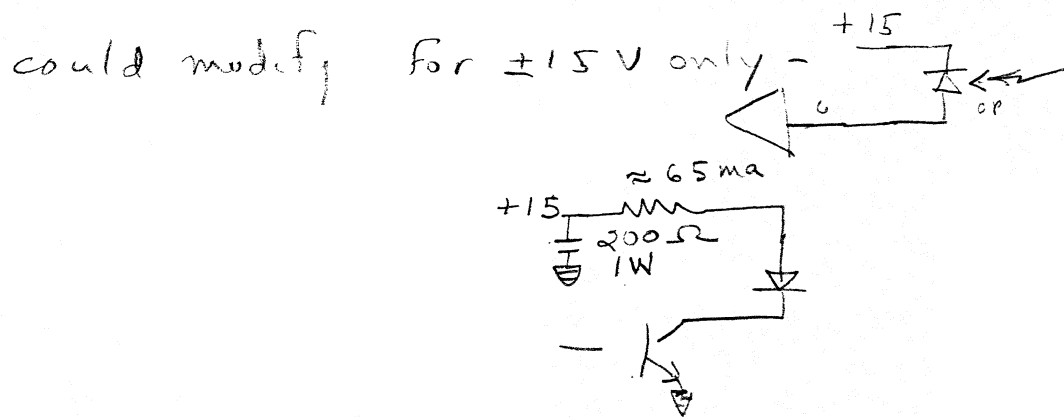 could modify for ±15 V only -
+15
6
OP
≈ 65 ma
+15
200 Ω
1W